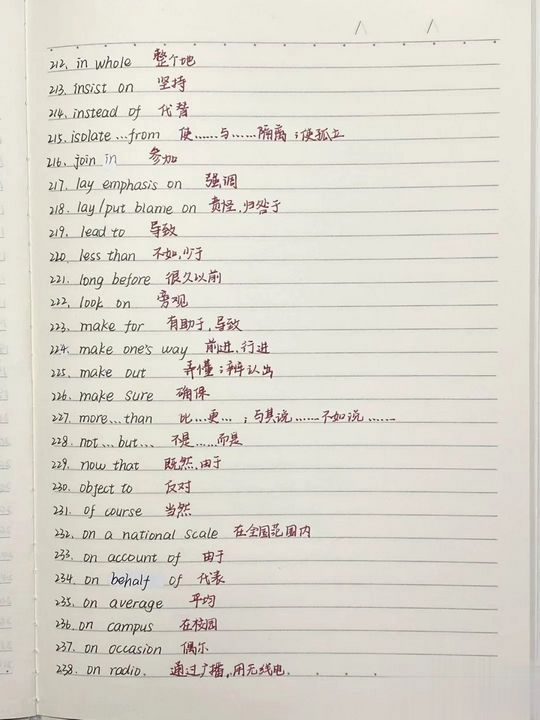 212. in whole 整个地
213. insist on 坚持
214. instead of 代替
215. isolate...from 使……与……隔离；使孤立
216. join in 参加
217. lay emphasis on 强调
218. lay/put blame on 责怪,归咎于
219. lead to 导致
220. less than 不如,少于
221. long before 很久以前
222. look on 旁观
223. make for 有助于,导致
224. make one's way 前进,行进
225. make out 弄懂；辨认出
226. make sure 确保
227. more...than 比...更...；与其说……不如说……
228. not...but... 不是……而是
229. now that 既然,由于
230. object to 反对
231. of course 当然
232. on a national scale 在全国范围内
233. on account of 由于
234. on behalf of 代表
235. on average 平均
236. on campus 在校园
237. on occasion 偶尔
238. on radio. 通过广播,用无线电.